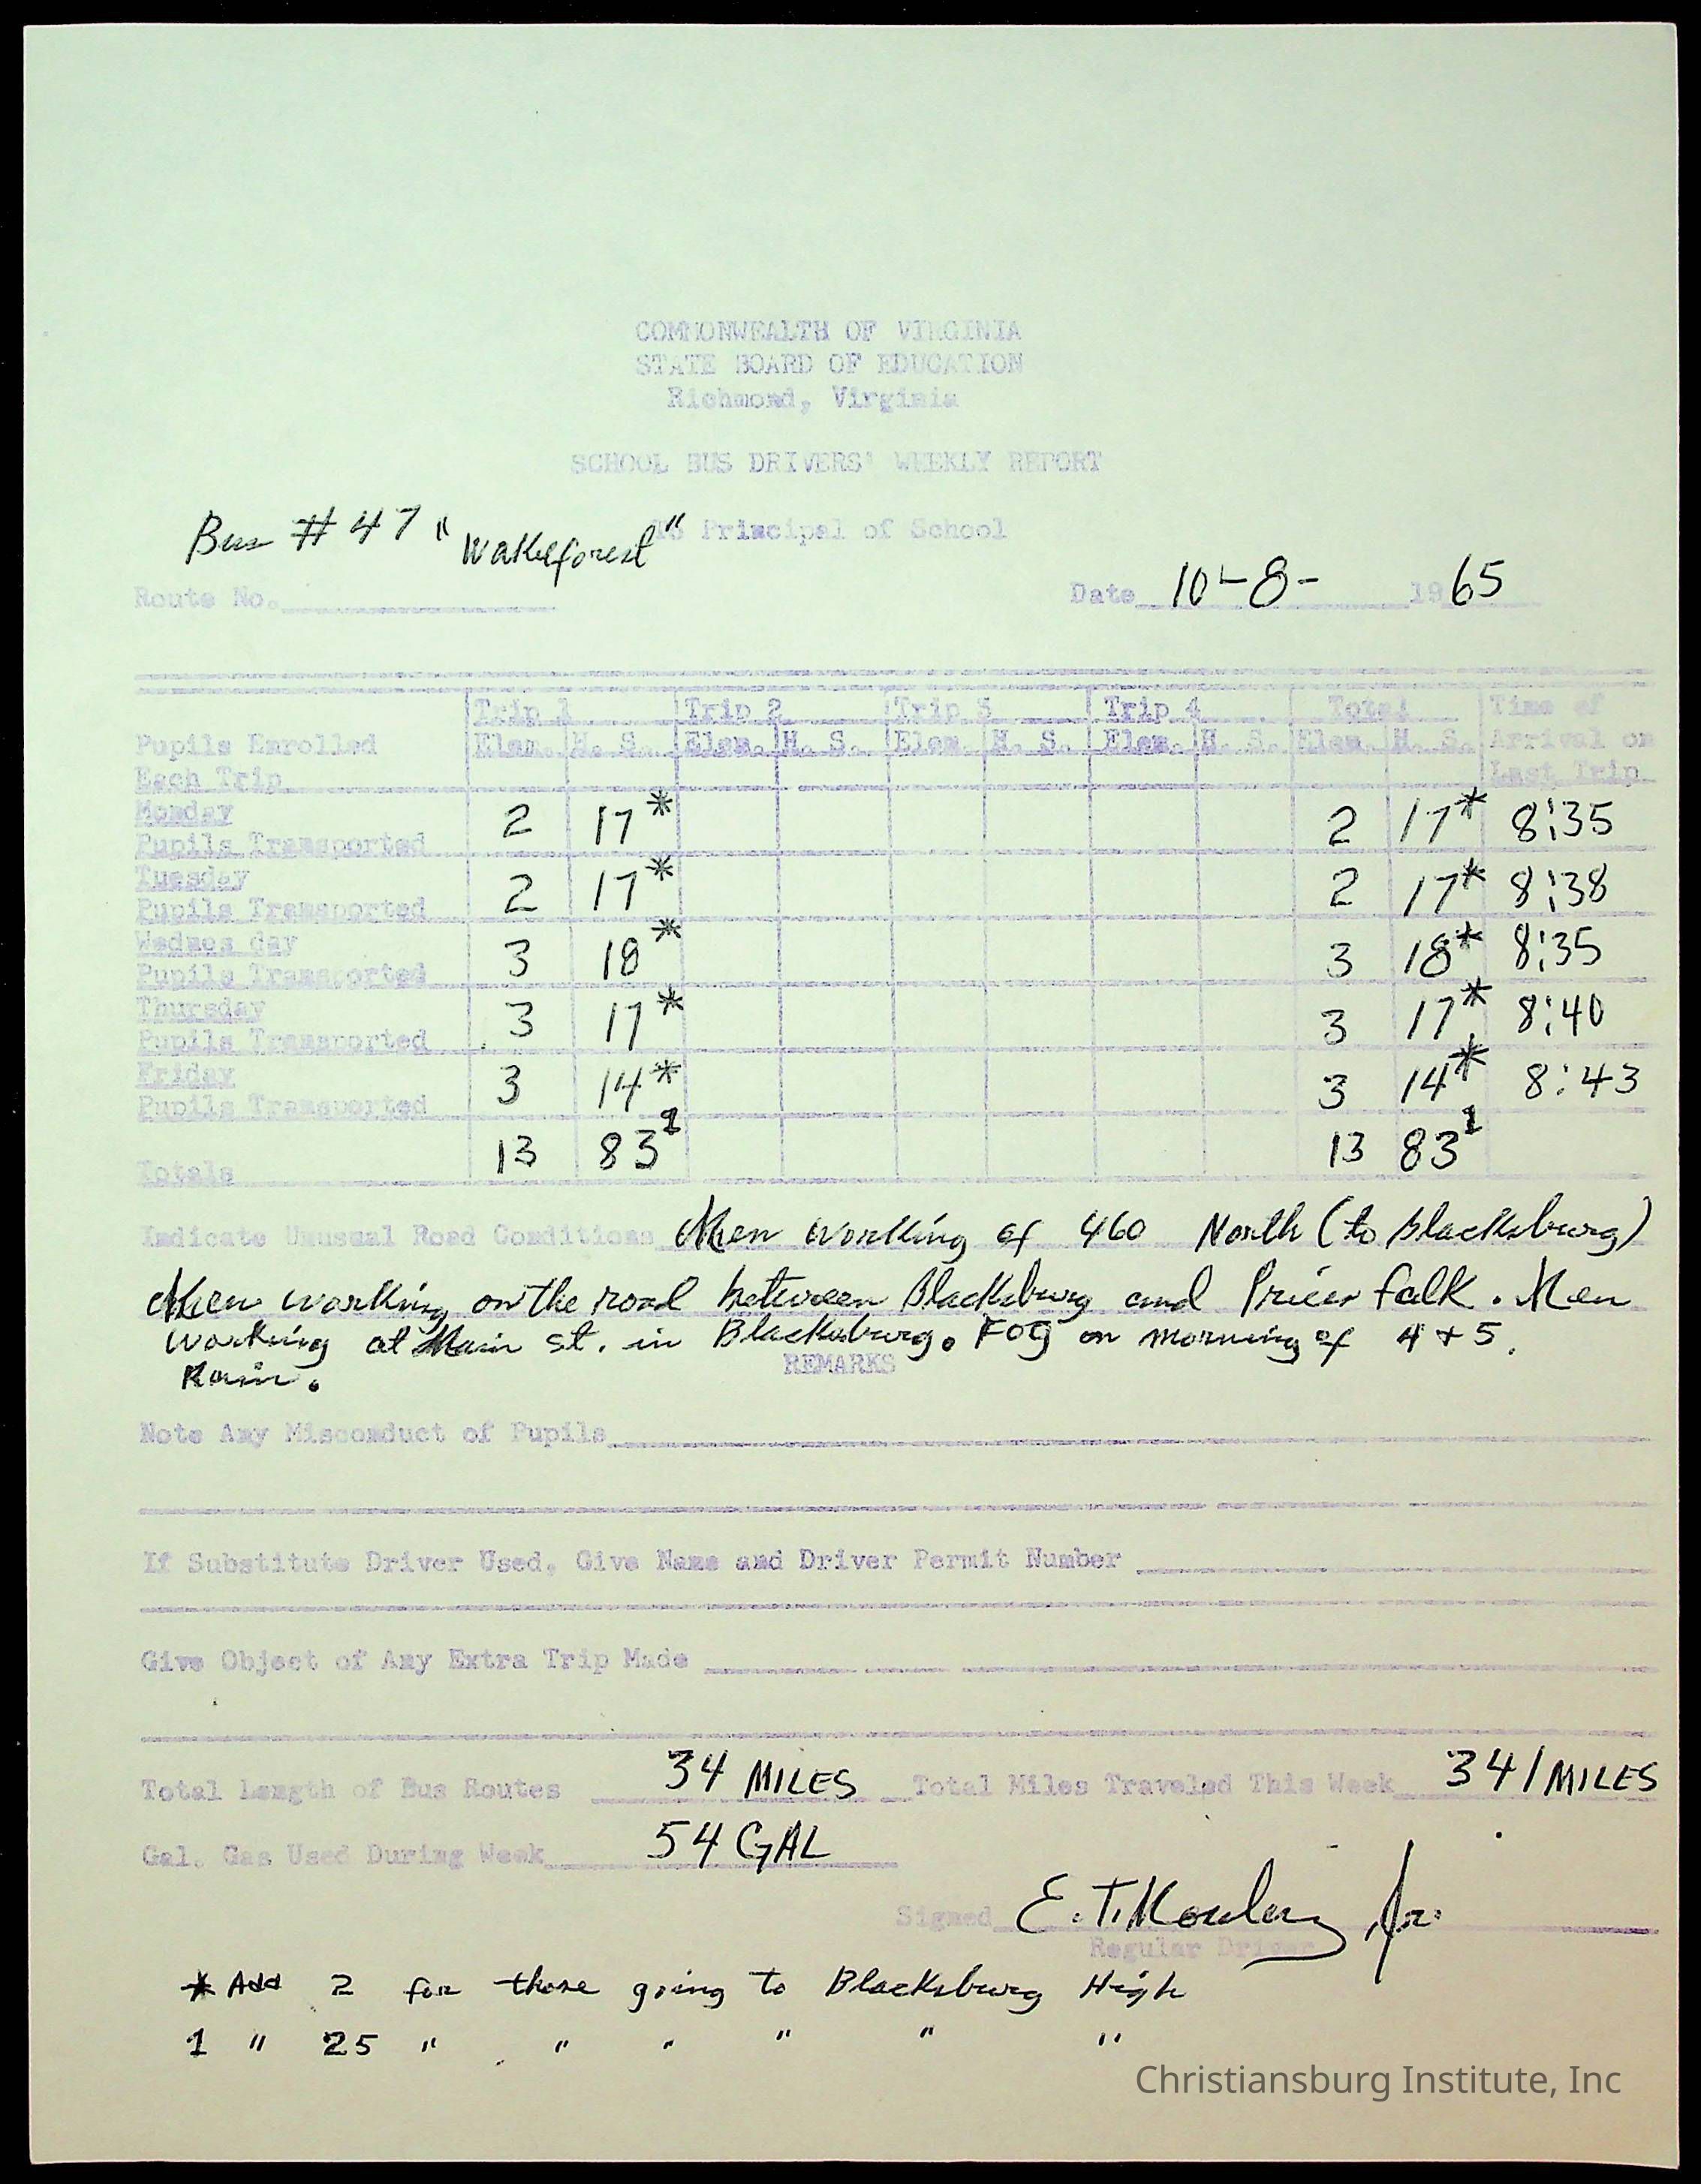 COMMONWEALTH OF VIRGINIA
STATE BOARD OF EDUCATION
Richmond, Virginia
SCHOOL BUS DRIVERS' WEEKLY REPORT
To Principal of School
Bus # 47 "Wakeforest"
Route No. Date 10-8- 1965
Trip 1 Trip 2 Trip 3 Trip 4 Total Time of
Pupils Enrolled Elem. H. S. Elem. H. S. Elem. H. S. Elem. H. S. Elem. H. S. Arrival on
Each Trip Last Trip
Monday
Pupils Transported 2 17* 2 17* 8:35
Tuesday
Pupils Transported 2 17* 2 17* 8:38
Wednesday
Pupils Transported 3 18* 3 18* 8:35
Thursday
Pupils Transported 3 17* 3 17* 8:40
Friday
Pupils Transported 3 14* 3 14* 8:43
Totals 13 83¹ 13 83¹
Indicate Unusual Road Conditions Men working of 460 North (to Blacksburg)
Men working on the road between Blacksburg and Prices falk. Men
working at Main st. in Blacksburg. Fog on morning of 4 + 5.
Rain.
REMARKS
Note Any Misconduct of Pupils
If Substitute Driver Used, Give Name and Driver Permit Number
Give Object of Any Extra Trip Made
Total Length of Bus Routes 34 MILES Total Miles Traveled This Week 341 MILES
Gal. Gas Used During Week 54 GAL
Signed E. T. Jr.
Regular Driver
* Add 2 for those going to Blacksburg High
1 " 25 " " " " " "
Christiansburg Institute, Inc